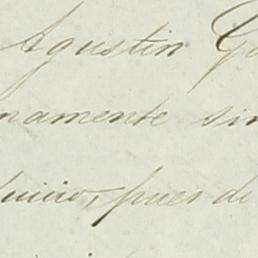 Agustin
namente sin
juicio, pues de